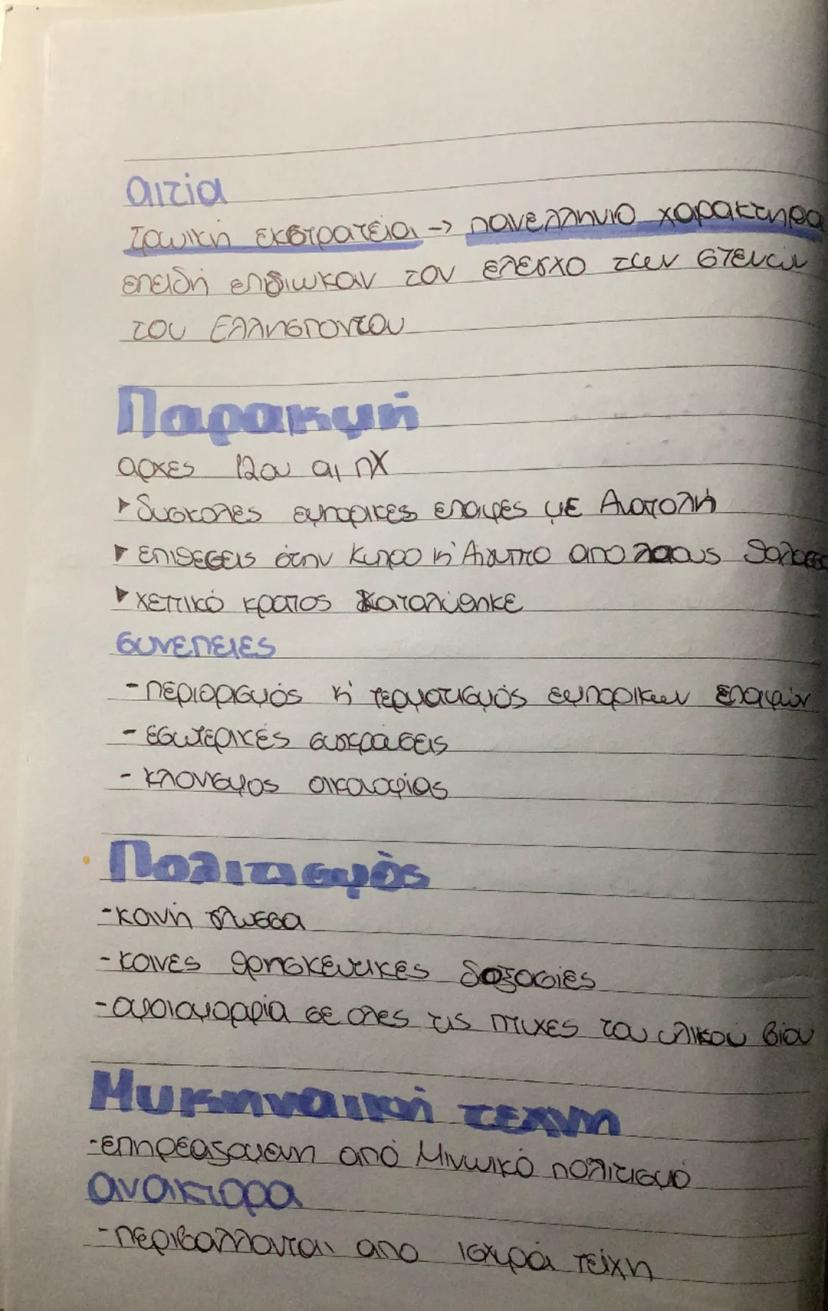 αιτία
Τρωική εκστρατεία → πανελλήνιο χαρακτηρα
επειδή επιδίωκαν τον έλεγχο των στενών
του Ελλησποντου
Παρακμή
αρχες 12ου αι πΧ
▸ δυσκολες εμπορικες επαφές με Ανατολή
▸ επιθεσεις στην Κυπρο κ' Αιγυπτο απο λαους θαλασσ
▸ χεττικό κρατος καταλύθηκε
συνεπειες
- περιορισμός κ' τερματισμός εμπορικων επαφών
- εσωτερικές συγκρούσεις
- κλονισμος οικονομίας
Πολιτισμός
- κοινή γλωσσα
- κοινες θρησκευτικές δοξασίες
- ομοιομορφία σε ολες τις πτυχες του υλικου βίου
Μυκηναϊκή τεχνη
- επηρεαζομενη από Μινωικό πολιτισμό
ανακτορα
- περιβαλλονται απο ισχυρά τείχη